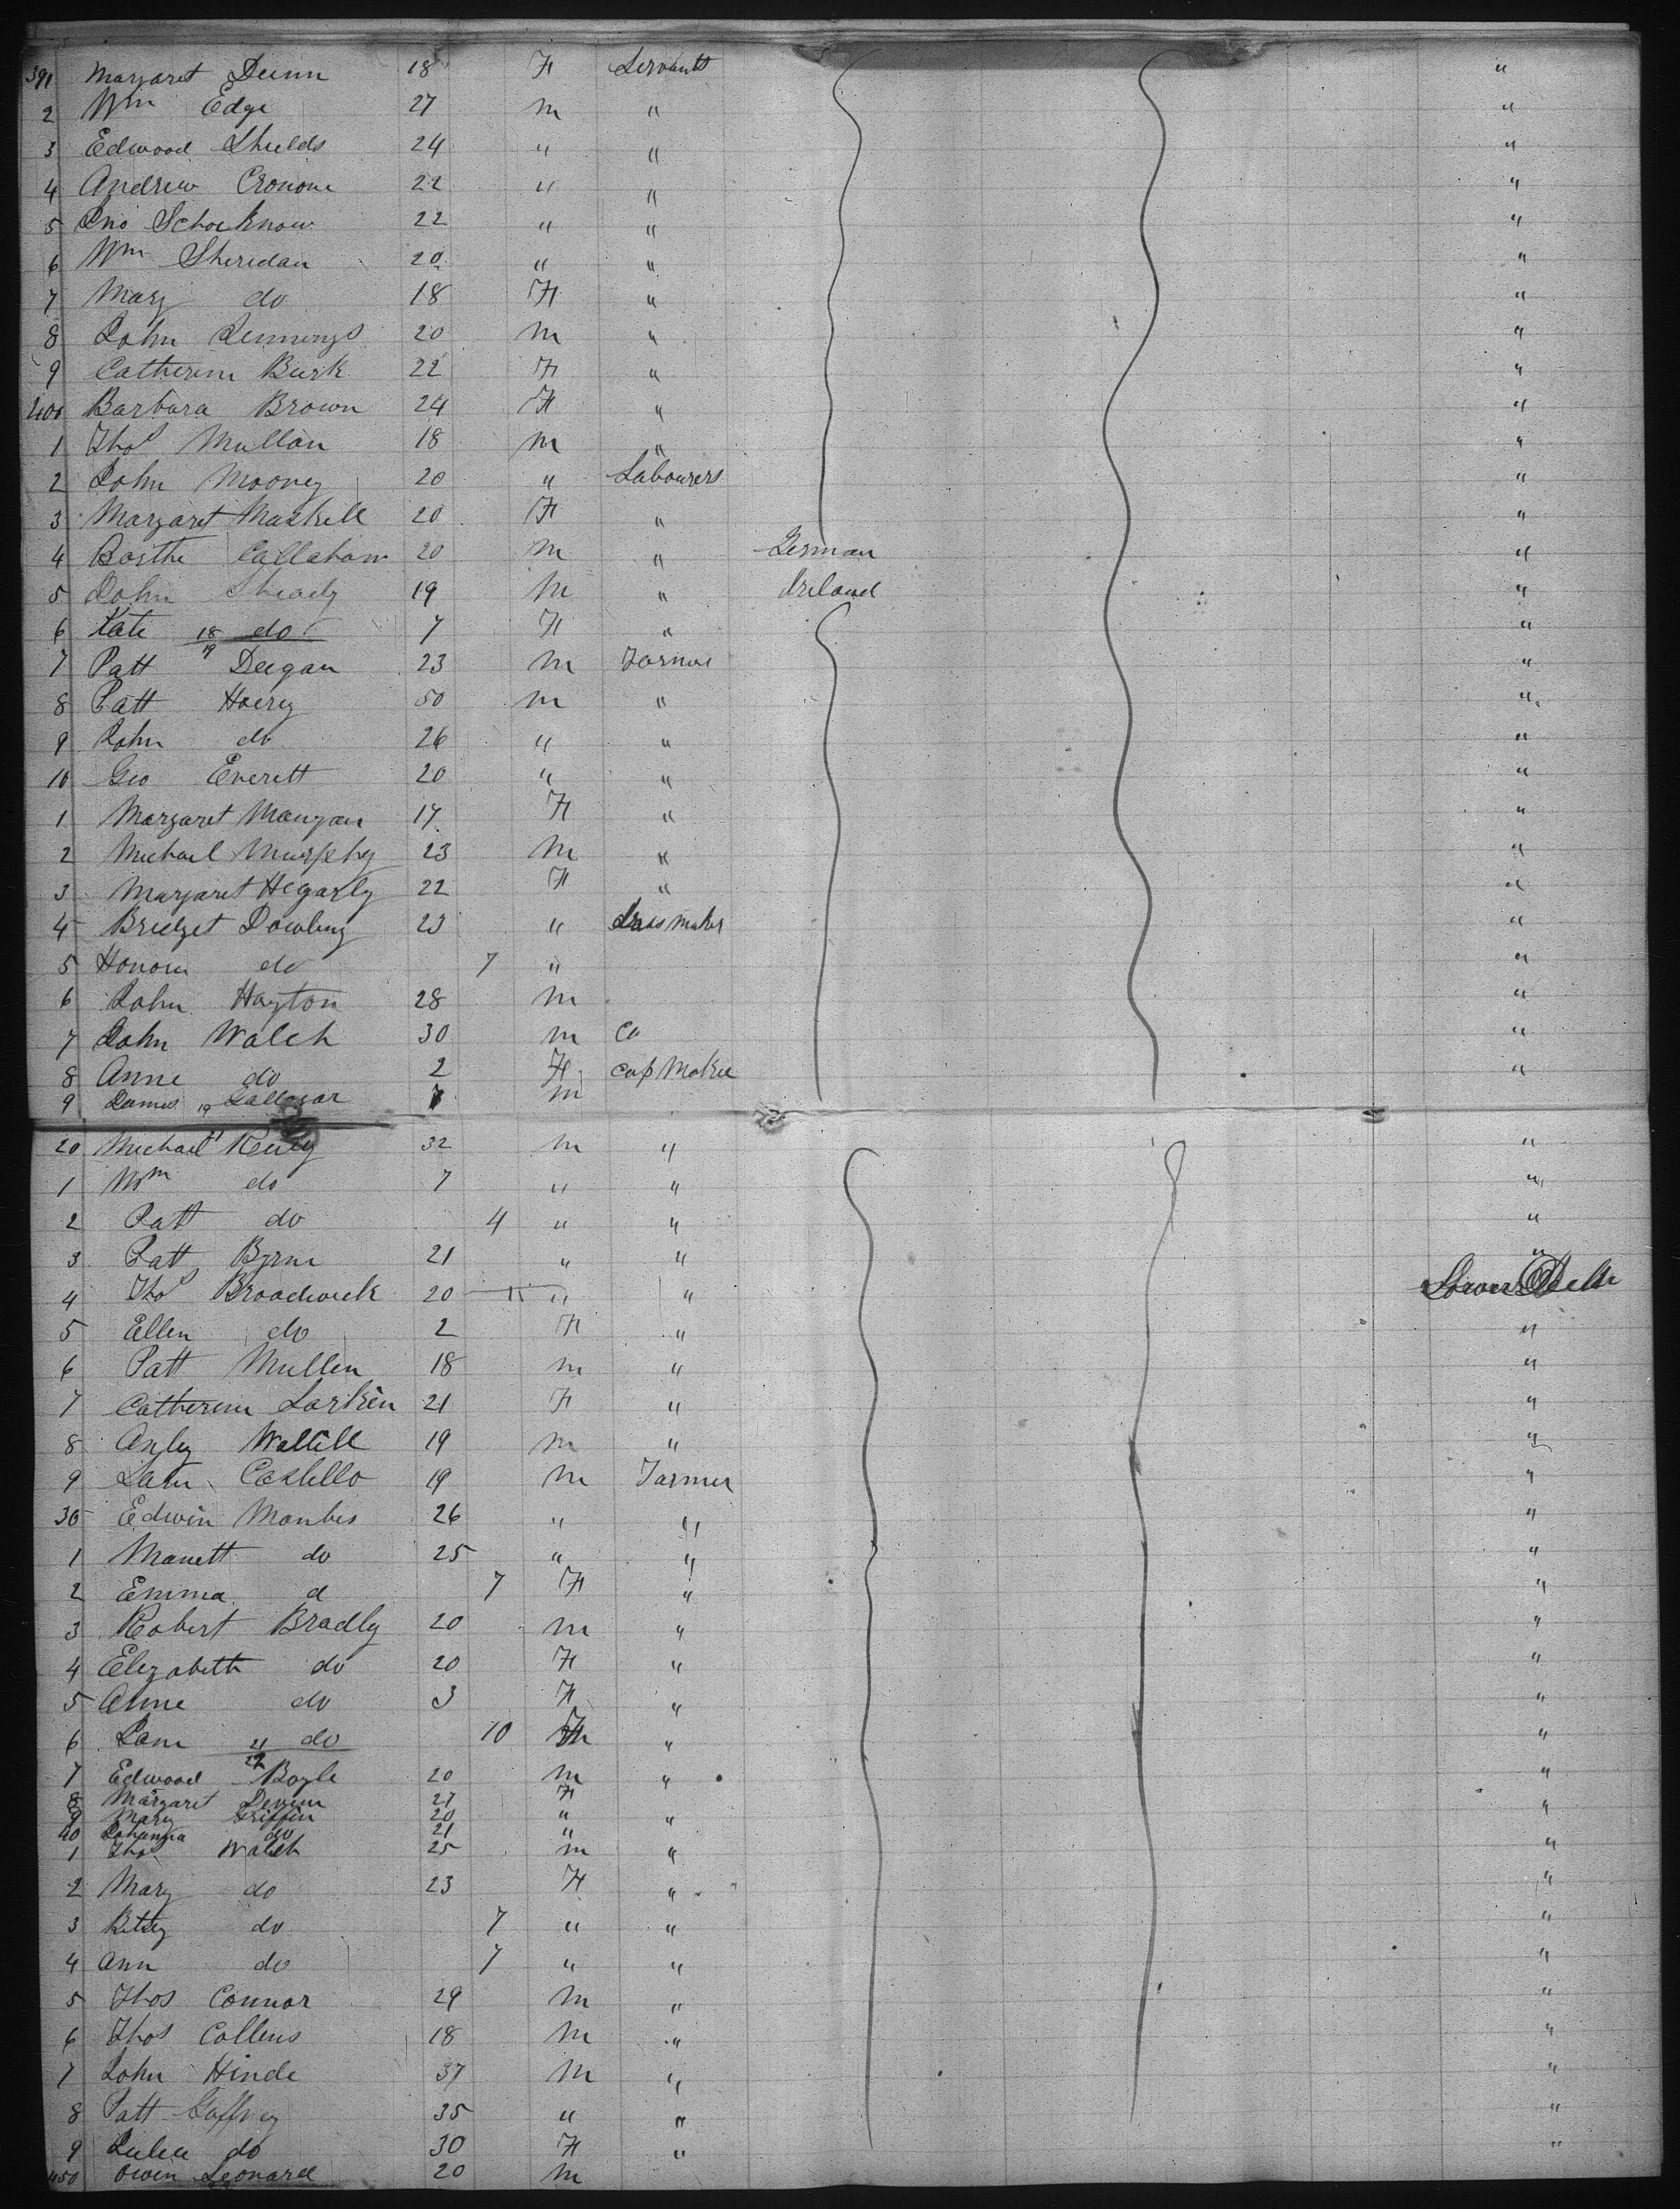 391 Margaret Dunn 18 F Servants "
2 Wm Edge 27 m " "
3 Edward Shields 24 " " "
4 Andrew Cronone 22 " " "
5 Jno Schocknow 22 " " "
6 Wm Sheridan 20 " " "
7 Mary do 18 F " "
8 John Jennings 20 m " "
9 Catherine Burk 22 F " "
400 Barbara Brown 24 F " "
1 Thos Mullan 18 m " "
2 John Mooney 20 " Labourers "
3 Margaret Maskell 20 F " "
4 Callahan 20 m " German "
5 John Sheady 19 m " Ireland "
6 Kate 18 do 7 F " "
19
7 Patt Deegan 23 m Farmer "
8 Patt Hoery 50 m " "
9 John do 26 " " "
10 Geo Everett 20 " " "
1 Margaret Mangan 17 F " "
2 Michael Murphy 23 m " "
3 Margaret Hegarty 22 F " "
4 Bridget Dowling 23 " dress maker "
5 Honora do 7 " "
6 John Hayton 28 m "
7 John Walch 30 m Ca "
8 Anne do 2 F cap Maker "
9 James 19 Gallagar m
20 Michael 21 Reily 32 m " "
1 Wm do 7 " " "
2 Patt do 4 " " "
3 Patt Byrne 21 " " "
4 Thos Broadwick 20 " " Lower
5 Ellen do 2 F " "
6 Patt Mullen 18 m " "
7 Catherine Larkin 21 F " "
8 19 m " "
9 Costello 19 m Farmer "
30 Edwin Manbes 26 " " "
1 Manett do 25 " " "
2 Emma d 7 F " "
3 Robert Bradly 20 m " "
4 Elizabeth do 20 F " "
5 Anne do 3 F " "
6 Jane 21 do 10 " "
22
7 Edward Boyle 20 m " "
8 Margaret 27 F "
9 Mary Griffin 20 " "
40 Johanna do 21 "
1 Thos Walsh 25 m " "
2 Mary do 23 F " "
3 Betsy do 7 " " "
4 Ann do 7 " " "
5 Thos Connor 29 m " "
6 Thos Collens 18 m " "
7 John Hinde 37 m " "
8 Patt Gaffney 35 " " "
9 Julia do 30 F " "
450 Owen Leonard 20 m